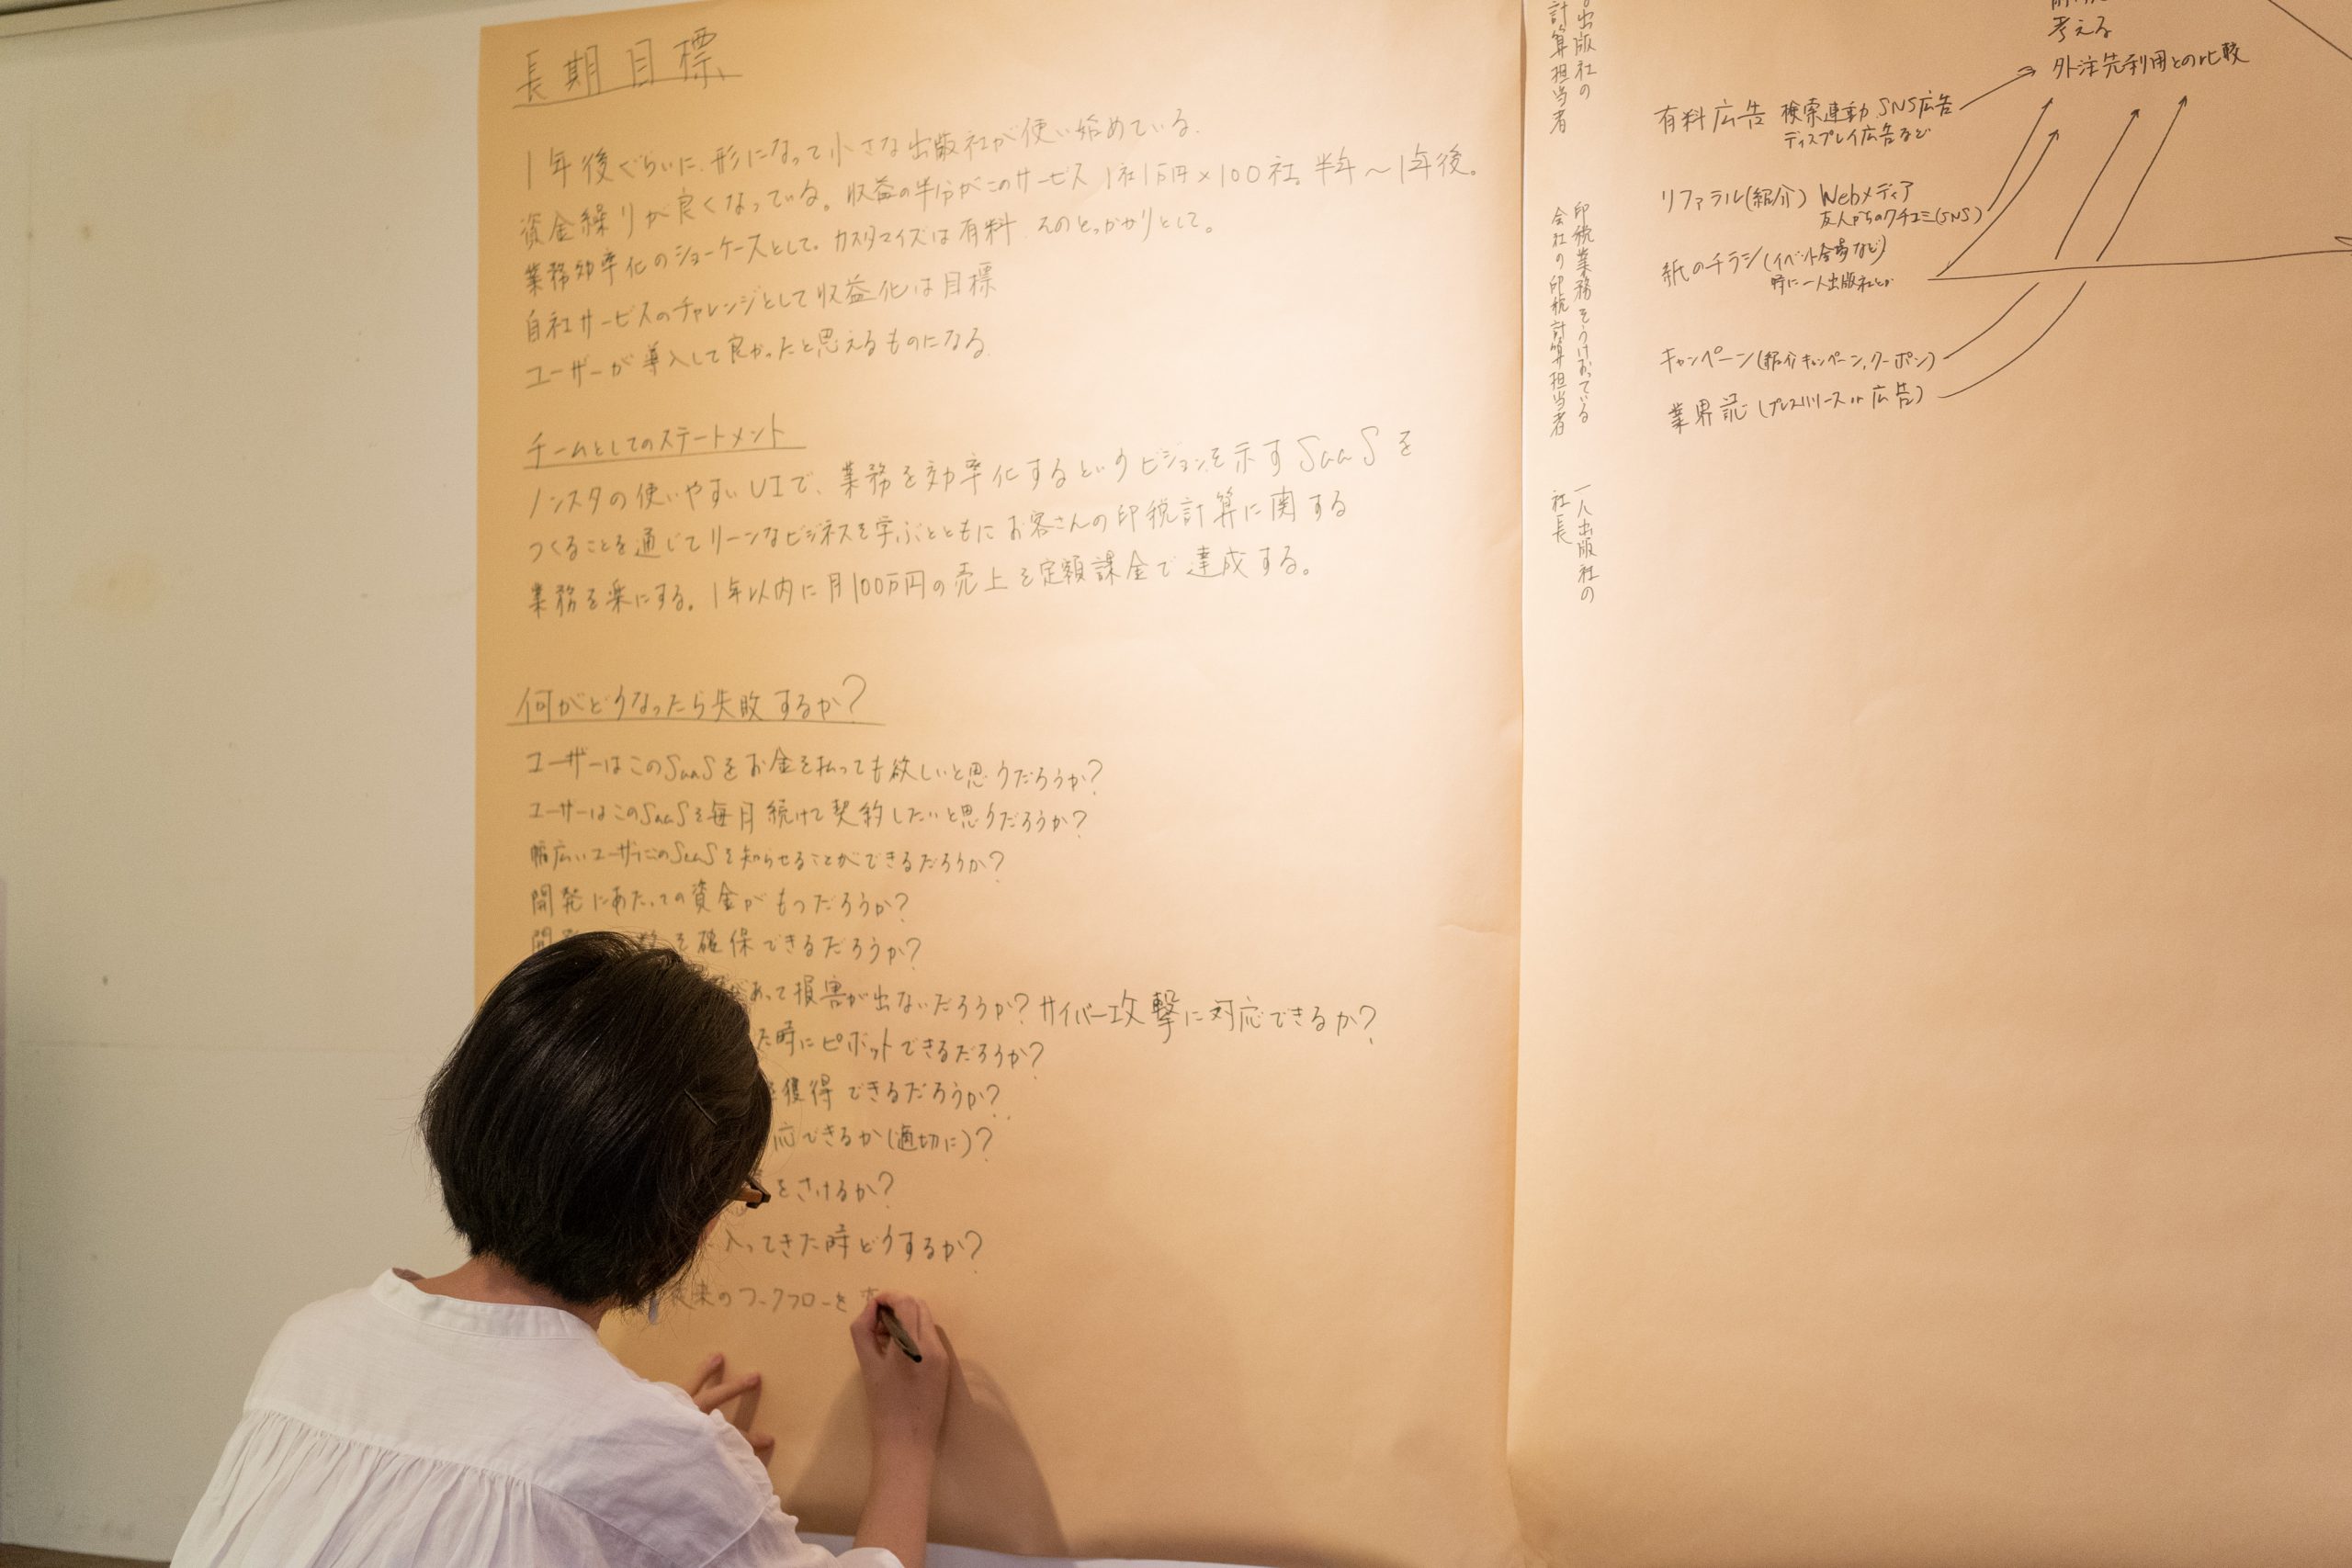 長期目標
1年後ぐらいに、形になって小さな出版社が使い始めている。
資金繰りが良くなっている。収益の半分がこのサービス 1社1万円×100社。半年〜1年後。
業務効率化のショーケースとして。カスタマイズは有料。そのとっかかりとして。
自社サービスのチャレンジとして収益化は目標
ユーザーが導入して良かったと思えるものになる
チームとしてのステートメント
ノンスタの使いやすいUIで、業務を効率化するというビジョンを示すSaaSを
つくることを通じてリーンなビジネスを学ぶとともにお客さんの印税計算に関する
業務を楽にする。1年以内に月100万円の売上を定額課金で達成する。
何がどうなったら失敗するか?
ユーザーはこのSaaSをお金を払っても欲しいと思うだろうか?
ユーザーはこのSaaSを毎月続けて契約したいと思うだろうか?
幅広いユーザーにこのSaaSを知らせることができるだろうか?
開発にあたっての資金がもつだろうか?
を確保できるだろうか?
があって損害が出ないだろうか?サイバー攻撃に対応できるか?
た時にピボットできるだろうか?
獲得できるだろうか?
応できるか(適切に)?
をさけるか?
入ってきた時どうするか?
従来のワークフローを
出版社の
計算担当者
印税業務をうけおっている
会社の印税計算担当者
一人出版社の
社長
考える
外注先利用との比較
有料広告 検索連動、SNS広告
ディスプレイ広告など
リファラル(紹介) Webメディア
友人からのクチコミ(SNS)
紙のチラシ(イベント会場など)
時に一人出版社とか
キャンペーン(紹介キャンペーン,クーポン)
業界誌(プレスリリース or 広告)